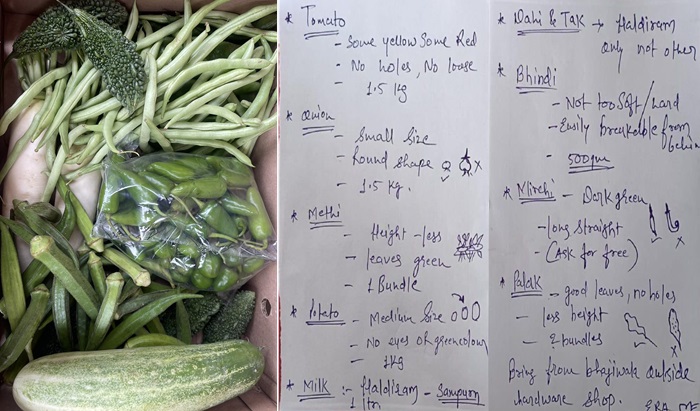 * Tomato
- Some yellow Some Red
- No holes, No loose
- 1.5 kg
* Onion
- Small Size
- Round shape
- 1.5 kg.
* Methi
- Height-less
- leaves green
- 1 Bundle
* Potato - Medium Size
- No eyes or green colour
- 1kg
* Milk :- Haldiram - Sampurn
1 ltr
* Dahi & Tak → Haldiram
only not other
* Bhindi
- Not too Soft / hard
- Easily breakable from
behind
- 500gm
* Mirchi - Dark green
- long straight
- (Ask for free)
* Palak - good leaves, no holes
- less height
- 2 bundles
Bring from bhajiwala outside
hardware shop.